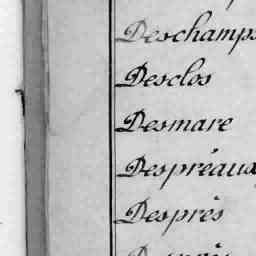 Deschamps
Desclos
Desmare
Despréaux
Desprès